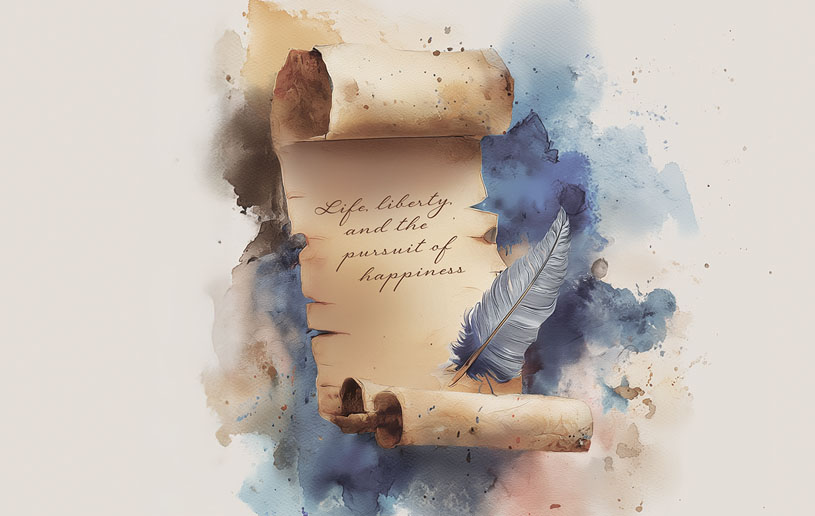 Life, liberty,
and the
pursuit of
happiness